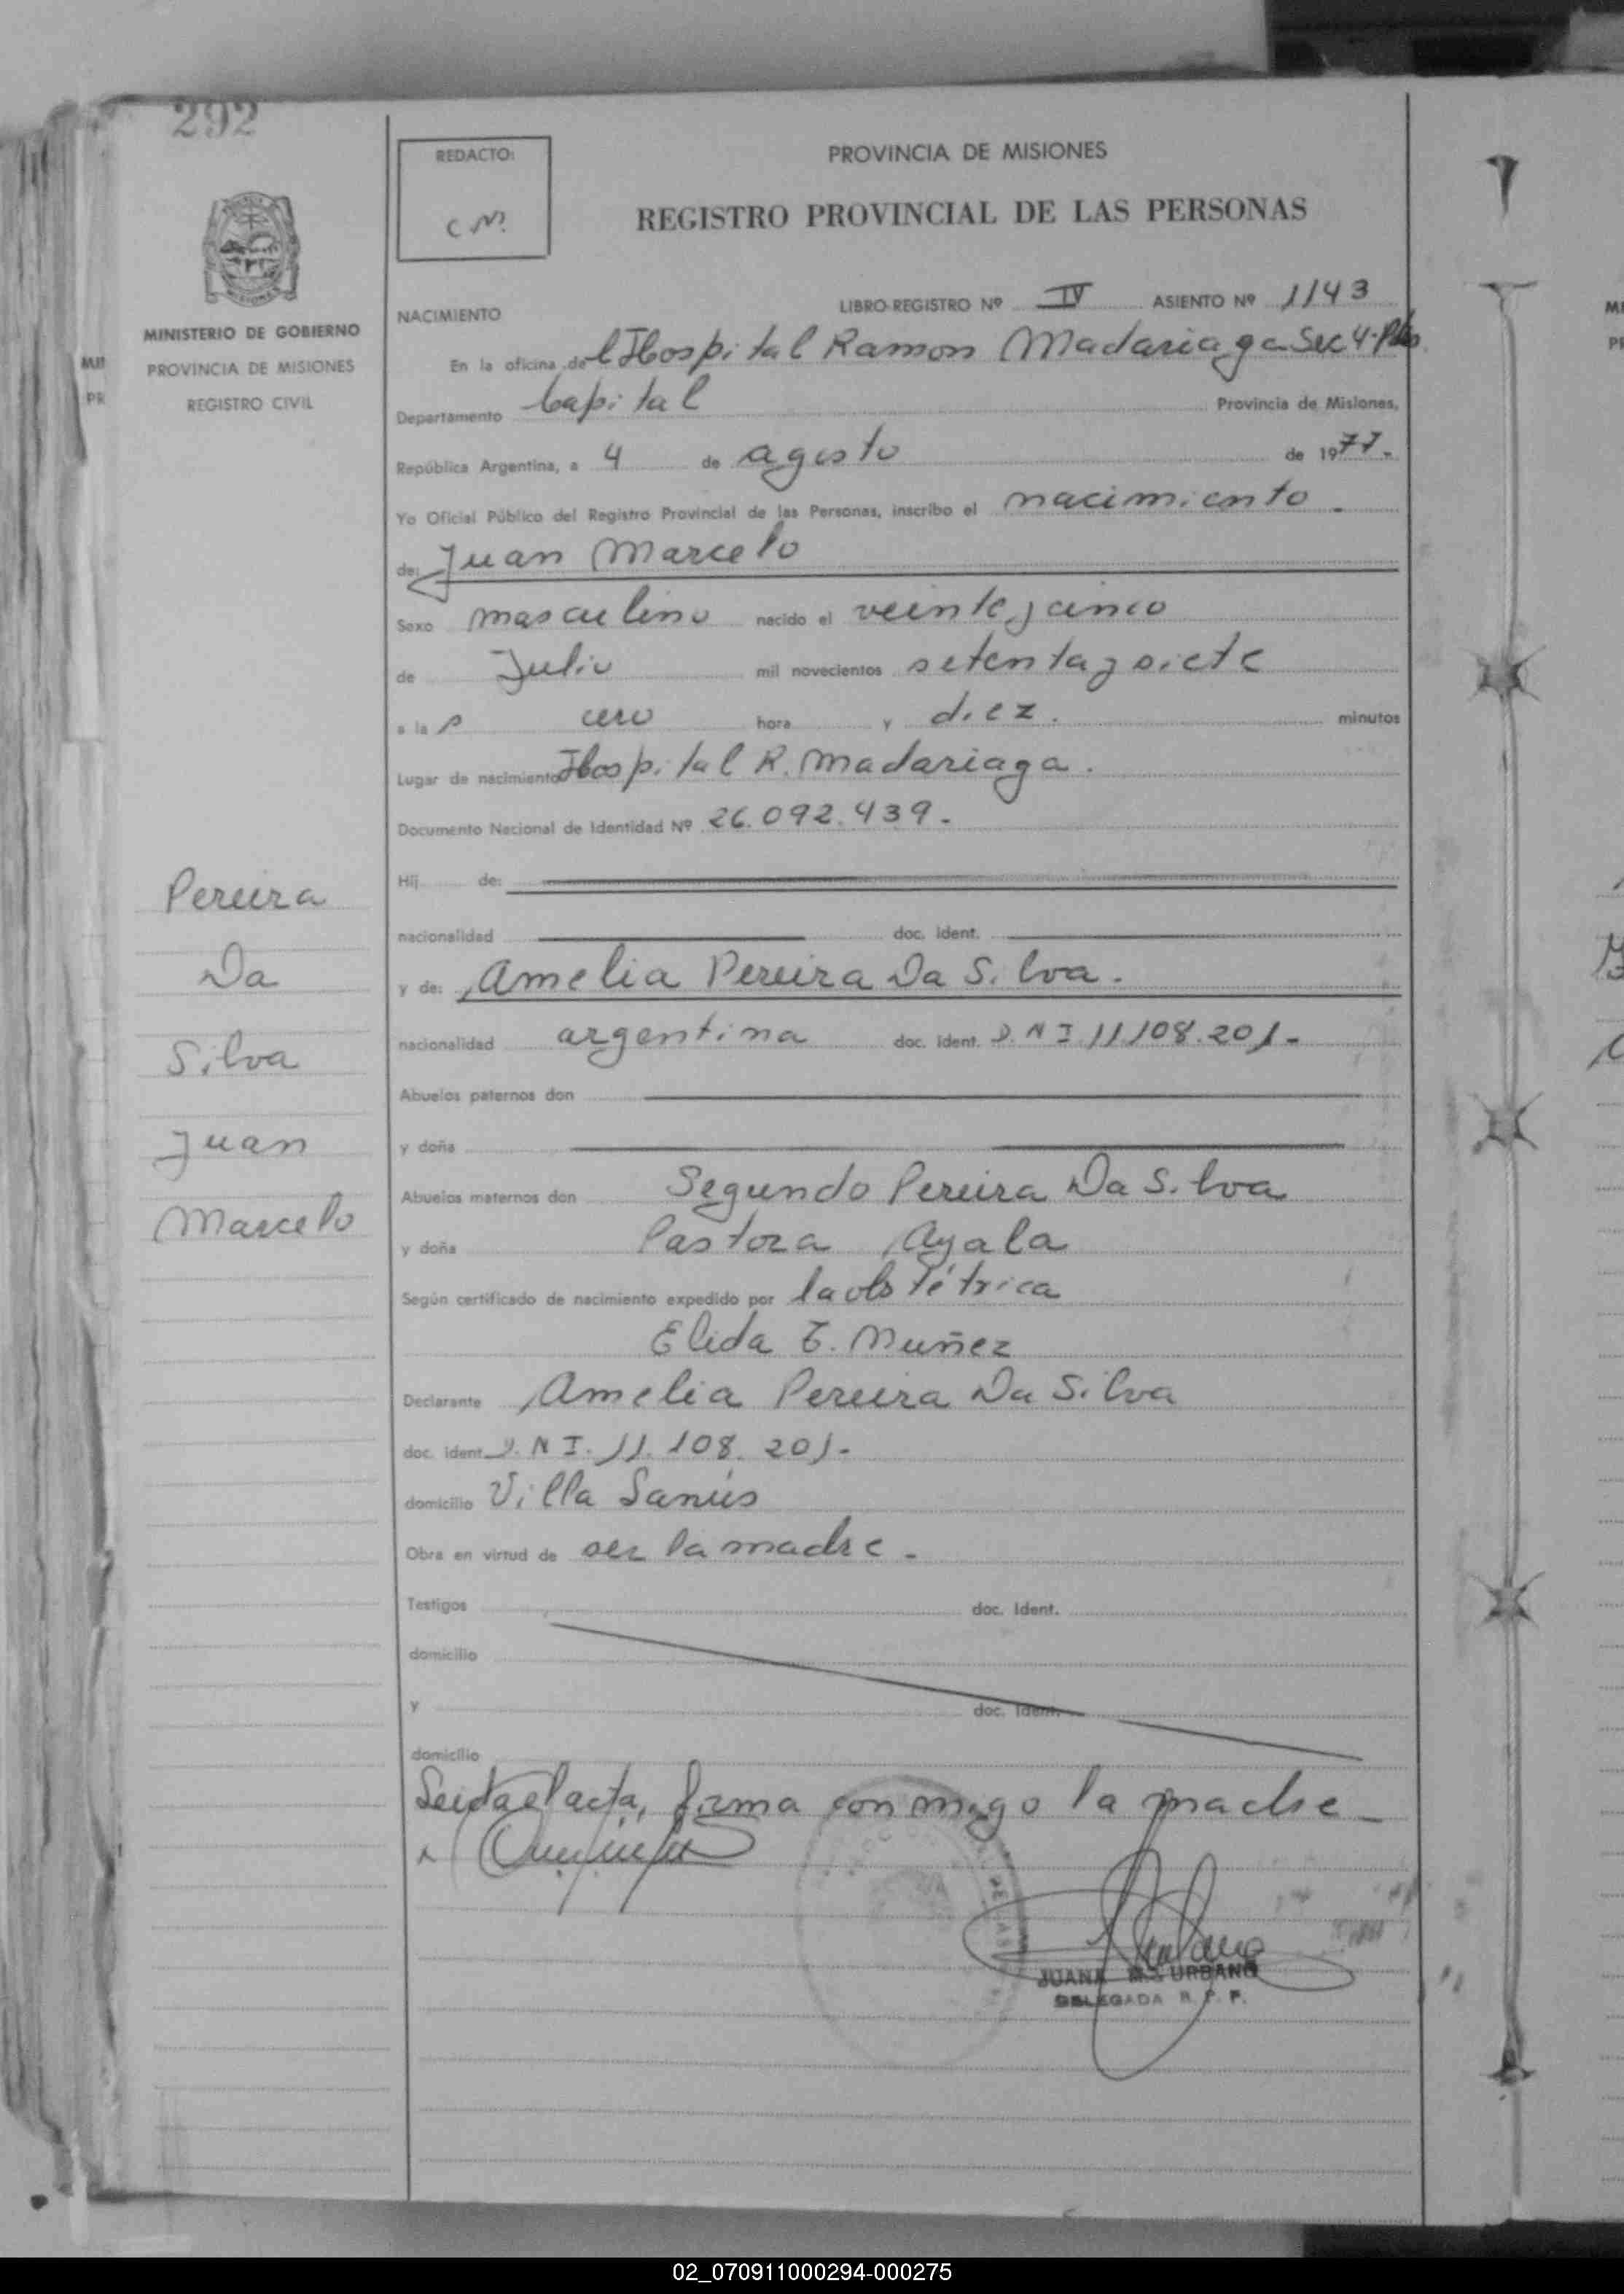 292
REDACTO:
C M.
PROVINCIA DE MISIONES
REGISTRO PROVINCIAL DE LAS PERSONAS
MISIONES
MINISTERIO DE GOBIERNO
PROVINCIA DE MISIONES
REGISTRO CIVIL
NACIMIENTO LIBRO-REGISTRO Nº IV ASIENTO Nº 1143
En la oficina de l Hospital Ramon Madariaga Sec 4. Pdas
Departamento Capital Provincia de Misiones,
República Argentina, a 4 de agosto de 1977.
Yo Oficial Público del Registro Provincial de las Personas, inscribo el nacimiento.
de: Juan Marcelo
Sexo masculino nacido el veinte y cinco
de Julio mil novecientos setenta y siete
a la s cero hora y diez. minutos
Lugar de nacimiento Hospital R. Madariaga.
Documento Nacional de Identidad Nº 26.092.439.
Hij de:
nacionalidad doc. ident.
y de: Amelia Pereira Da Silva.
nacionalidad argentina doc. ident. D.N I 11.108.201.-
Abuelos paternos don
y doña
Abuelos maternos don Segundo Pereira Da Silva
y doña Pastora Ayala
Según certificado de nacimiento expedido por la obstétrica
Elida E. Muñez
Declarante Amelia Pereira Da Silva
doc. ident. D. N I. 11. 108. 201.-
domicilio Villa Sanús
Obra en virtud de ser la madre.
Testigos doc. ident.
domicilio
y doc. ident.
domicilio
Leida el acta, firma conmigo la madre
JUANA URBANO
DELEGADA R. P. P.
Pereira
Da
Silva
Juan
Marcelo
02_070911000294-000275